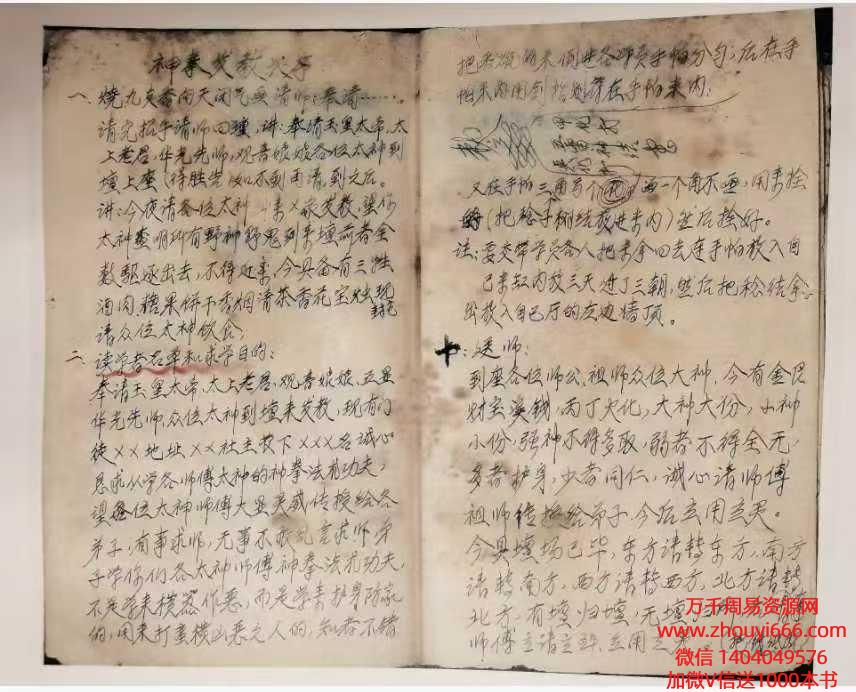 神拳发教次序
一、烧九支香向天闭气画请师：奉请……。
请完招手请师回坛，讲：奉请玉皇大帝，太
上老君，华光先师，观音娘娘各位大神到
坛上座（待胜告，如不到再请，到之后。
讲：今夜请各位太神 来×家发教，望你
太神查明所有野神野鬼到来坛前者全
数驱逐出去，不得近来，今具备有三牲
酒肉，糖果饼干香烟清茶香花宝烛
请众位太神饮食；
二、读学者名单和求学目的：
奉请玉皇大帝，太上老君，观音娘娘，五显
华光先师，众位太神到坛来发教，现有门
徒××地址××社主衣下×××名诚心
恳求从学各师傅太神的神拳法功夫，
望各位太神师傅大显灵威传授给各
弟子，有事求师，无事不敢乱言求师，弟
子学你们各太神师傅神拳法功夫，
不是学来横恶作恶，而是学来护身防家
的，用来打蛮横凶恶之人的，知者不错
把 的米倒进各师员手帕分匀；后在手
帕米内用 在手帕来内：
又在手帕三角写个花，一个角不画，用来捡
（把稔子树结放进米内）然后捡好。
法：要交带学员各人把米拿回去连手帕放入自
己米缸内放三天过了三朝，然后把稔结拿
出放入自己厅的左边墙顶。
十：送师：
到座各位师公，祖师众位大神，今有金银
财宝溪钱，丙丁火化，大神大份，小神
小份，强神不得多取，弱者不得全无，
多者护身，少者同仁，诚心请师傅
祖师传授给弟子，今后立用立灵。
今具坛场已毕，东方请转东方，南方
请转南方，西方请转西方，北方请转
北方，有坛归坛，无坛
师傅立请立到，立用立灵
万千周易资源网
www.zhouyi666.com
微信 1404049576
加微V信送1000本书